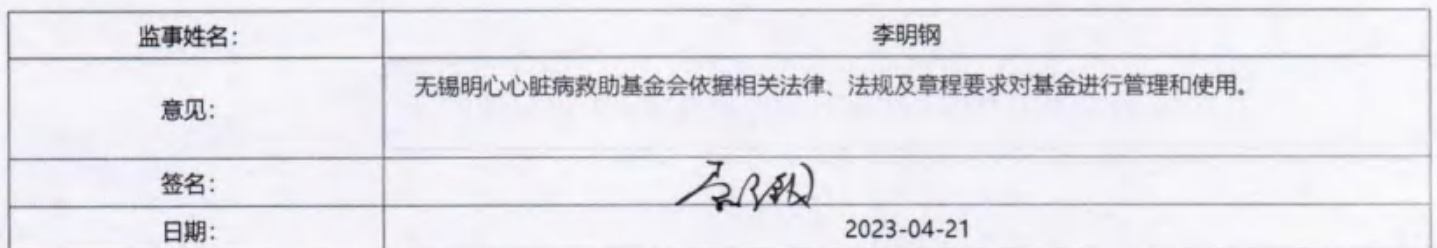 监事姓名： 李明钢
意见： 无锡明心心脏病救助基金会依据相关法律、法规及章程要求对基金进行管理和使用。
签名：
日期： 2023-04-21